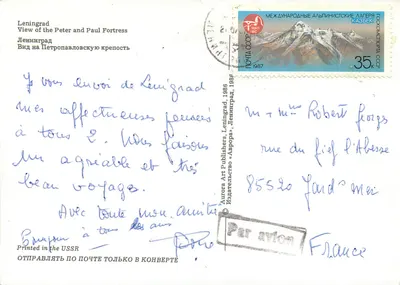 Leningrad
View of the Peter and Paul Fortress
Ленинград
Вид на Петропавловскую крепость
Je vous envoi de Leningrad
mes affectueuses pensées
à tous 2. Nous faisons
un agréable et très
beau voyage.
Avec toute mon amitié
Bonjour à tous
Printed in the USSR
ОТПРАВЛЯТЬ ПО ПОЧТЕ ТОЛЬКО В КОНВЕРТЕ
Aurora Art Publishers, Leningrad, 1986
Издательство «Аврора», Ленинград, 1986
МЕЖДУНАРОДНЫЕ АЛЬПИНИСТСКИЕ ЛАГЕРЯ
ПОЧТА СССР
1987
35к
m + mme Robert
rue du fief l'Abesse
85520 Jard s/ mer
Par avion
France